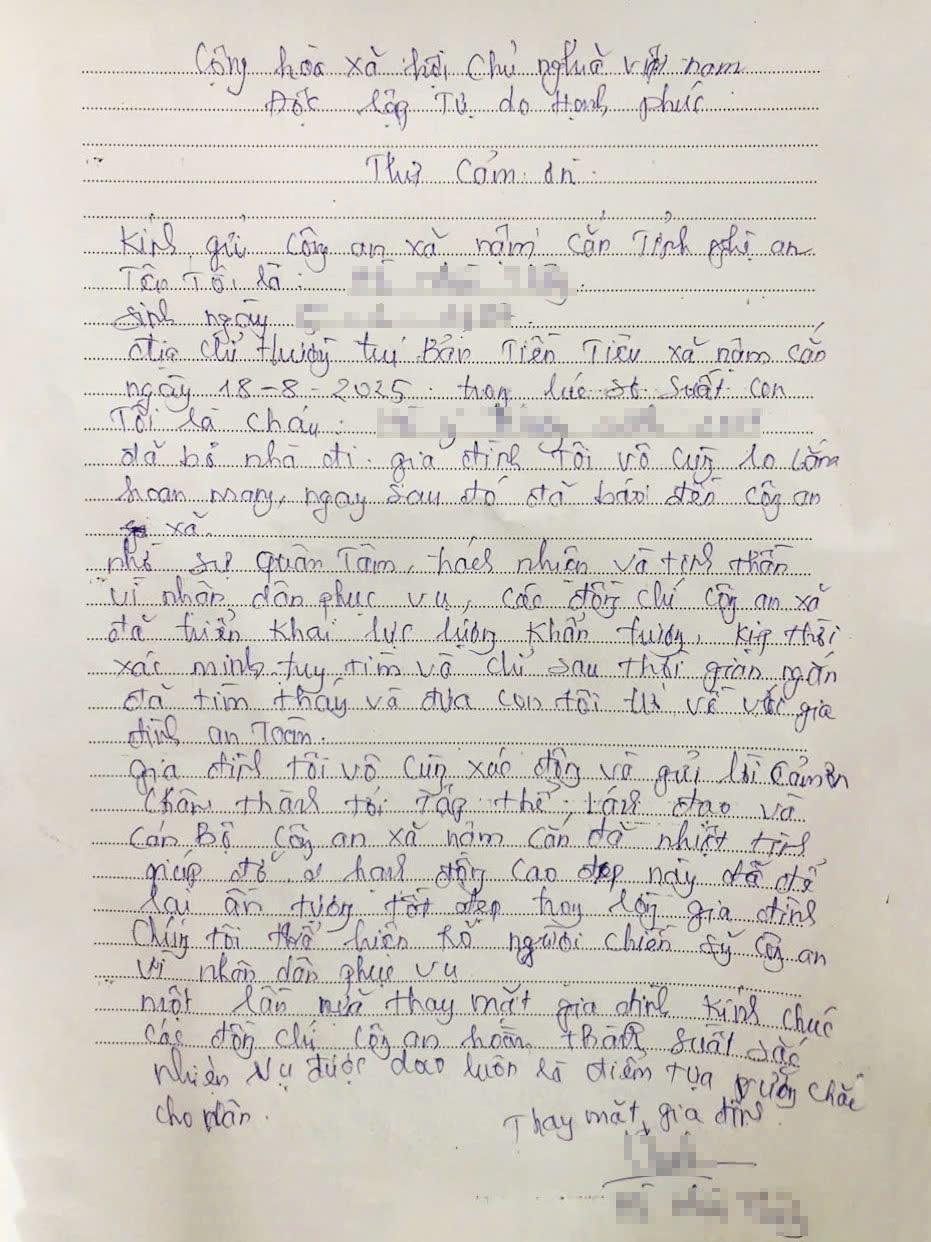 Cộng hòa xã hội chủ nghĩa việt nam
Độc lập Tự do Hạnh phúc
Thư Cảm ơn
Kính gửi Công an xã nậm cắn Tỉnh nghệ an
Tên Tôi là :
sinh ngày
địa chỉ thường trú Bản Tiền Tiêu xã nậm cắn
ngày 18-8-2025. trong lúc sơ suất con
Tôi là cháu :
đã bỏ nhà đi. gia đình tôi vô cùng lo lắng
hoan mang, ngay sau đó đã báo đến công an
xã.
nhờ sự quan Tâm, trách nhiện và tinh thần
vì nhân dân phục vụ, các đồng chí công an xã
đã triển khai lực lượng khẩn trương, kịp thời
xác minh, truy tìm và chỉ sau thời gian ngắn
đã tìm thấy và đưa con tôi trở về với gia
đình an Toàn.
gia đình tôi vô cùng xúc động và gửi lời cảm ơn
chân thành tới Tập thể, lãnh đạo và
cán Bộ công an xã nậm cắn đã nhiệt tình
giúp đỡ hành động cao đẹp này đã để
lại ấn tượng tốt đẹp trong lòng gia đình
chúng tôi thể hiện rõ người chiến sỹ công an
vì nhân dân phục vụ
một lần nữa thay mặt gia đình kính chúc
các đồng chí công an hoàn thành suất sắc
nhiện vụ được dao luôn là điểm tựa vững chắc
cho dân.
Thay mặt gia đình